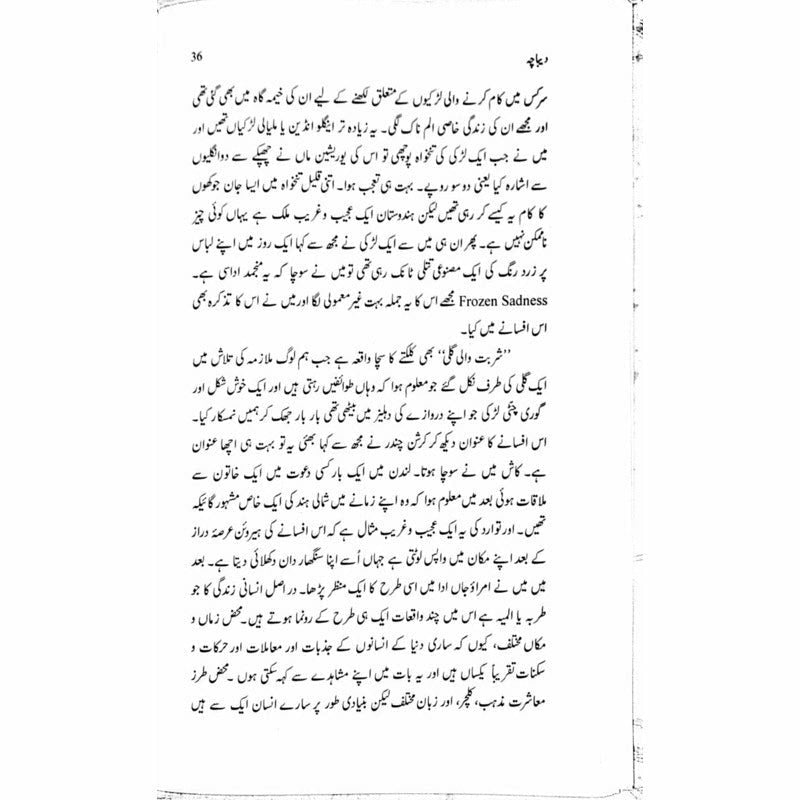 دیباچہ 36
سرکس میں کام کرنے والی لڑکیوں کے متعلق لکھنے کے لیے ان کی خیمہ گاہ میں بھی گئی تھی
اور مجھے ان کی زندگی خاصی الم ناک لگی۔ یہ زیادہ تر اینگلو انڈین یا ملیالی لڑکیاں تھیں اور
میں نے جب ایک لڑکی کی تنخواہ پوچھی تو اس کی یوریشین ماں نے چپکے سے دو انگلیوں
سے اشارہ کیا یعنی دو سو روپے۔ بہت ہی تعجب ہوا۔ اتنی قلیل تنخواہ میں ایسا جان جوکھوں
کا کام یہ کیسے کر رہی تھیں لیکن ہندوستان ایک عجیب و غریب ملک ہے یہاں کوئی چیز
ناممکن نہیں ہے۔ پھر ان ہی میں سے ایک لڑکی نے مجھ سے کہا ایک روز میں اپنے لباس
پر زرد رنگ کی ایک مصنوعی تتلی ٹانک رہی تھی تو میں نے سوچا کہ یہ منجمد اداسی ہے۔
Frozen Sadness مجھے اس کا یہ جملہ بہت غیر معمولی لگا اور میں نے اس کا تذکرہ بھی
اس افسانے میں کیا۔
’’شربت والی گلی‘‘ بھی کلکتے کا سچا واقعہ ہے جب ہم لوگ ملازمہ کی تلاش میں
ایک گلی کی طرف نکل گئے جو معلوم ہوا کہ وہاں طوائفیں رہتی ہیں اور ایک خوش شکل اور
گوری چٹی لڑکی جو اپنے دروازے کی دہلیز میں بیٹھی تھی بار بار جھک کر ہمیں نمسکار کیا۔
اس افسانے کا عنوان دیکھ کر کرشن چندر نے مجھ سے کہا بھئی یہ تو بہت ہی اچھا عنوان
ہے۔ کاش میں نے سوچا ہوتا۔ لندن میں ایک بار کسی دعوت میں ایک خاتون سے
ملاقات ہوئی بعد میں معلوم ہوا کہ وہ اپنے زمانے میں شمالی ہند کی ایک خاص مشہور گائیکہ
تھیں۔ اور توارد کی یہ ایک عجیب و غریب مثال ہے کہ اس افسانے کی ہیروئن عرصۂ دراز
کے بعد اپنے مکان میں واپس لوٹتی ہے جہاں اُسے اپنا سنگھار دان دکھلائی دیتا ہے۔ بعد
میں میں نے امراؤ جاں ادا میں اسی طرح کا ایک منظر پڑھا۔ در اصل انسانی زندگی کا جو
طربہ یا المیہ ہے اس میں چند واقعات ایک ہی طرح کے رونما ہوتے ہیں۔ محض زماں و
مکاں مختلف، کیوں کہ ساری دنیا کے انسانوں کے جذبات اور معاملات اور حرکات و
سکنات تقریباً یکساں ہیں اور یہ بات میں اپنے مشاہدے سے کہہ سکتی ہوں۔ محض طرز
معاشرت مذہب، کلچر، اور زبان مختلف لیکن بنیادی طور پر سارے انسان ایک سے ہیں